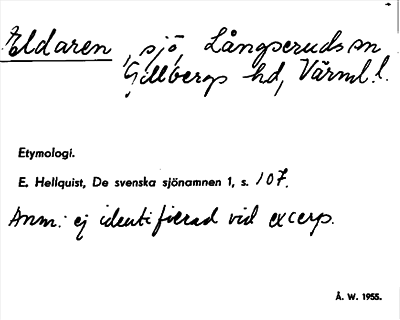 Eldaren, sjö, Långseruds sn
Gillbergs hd, Värml. l.
Etymologi.
E. Hellquist, De svenska sjönamnen 1, s. 107.
Anm: ej identifierad vid excerp.
Å. W. 1955.